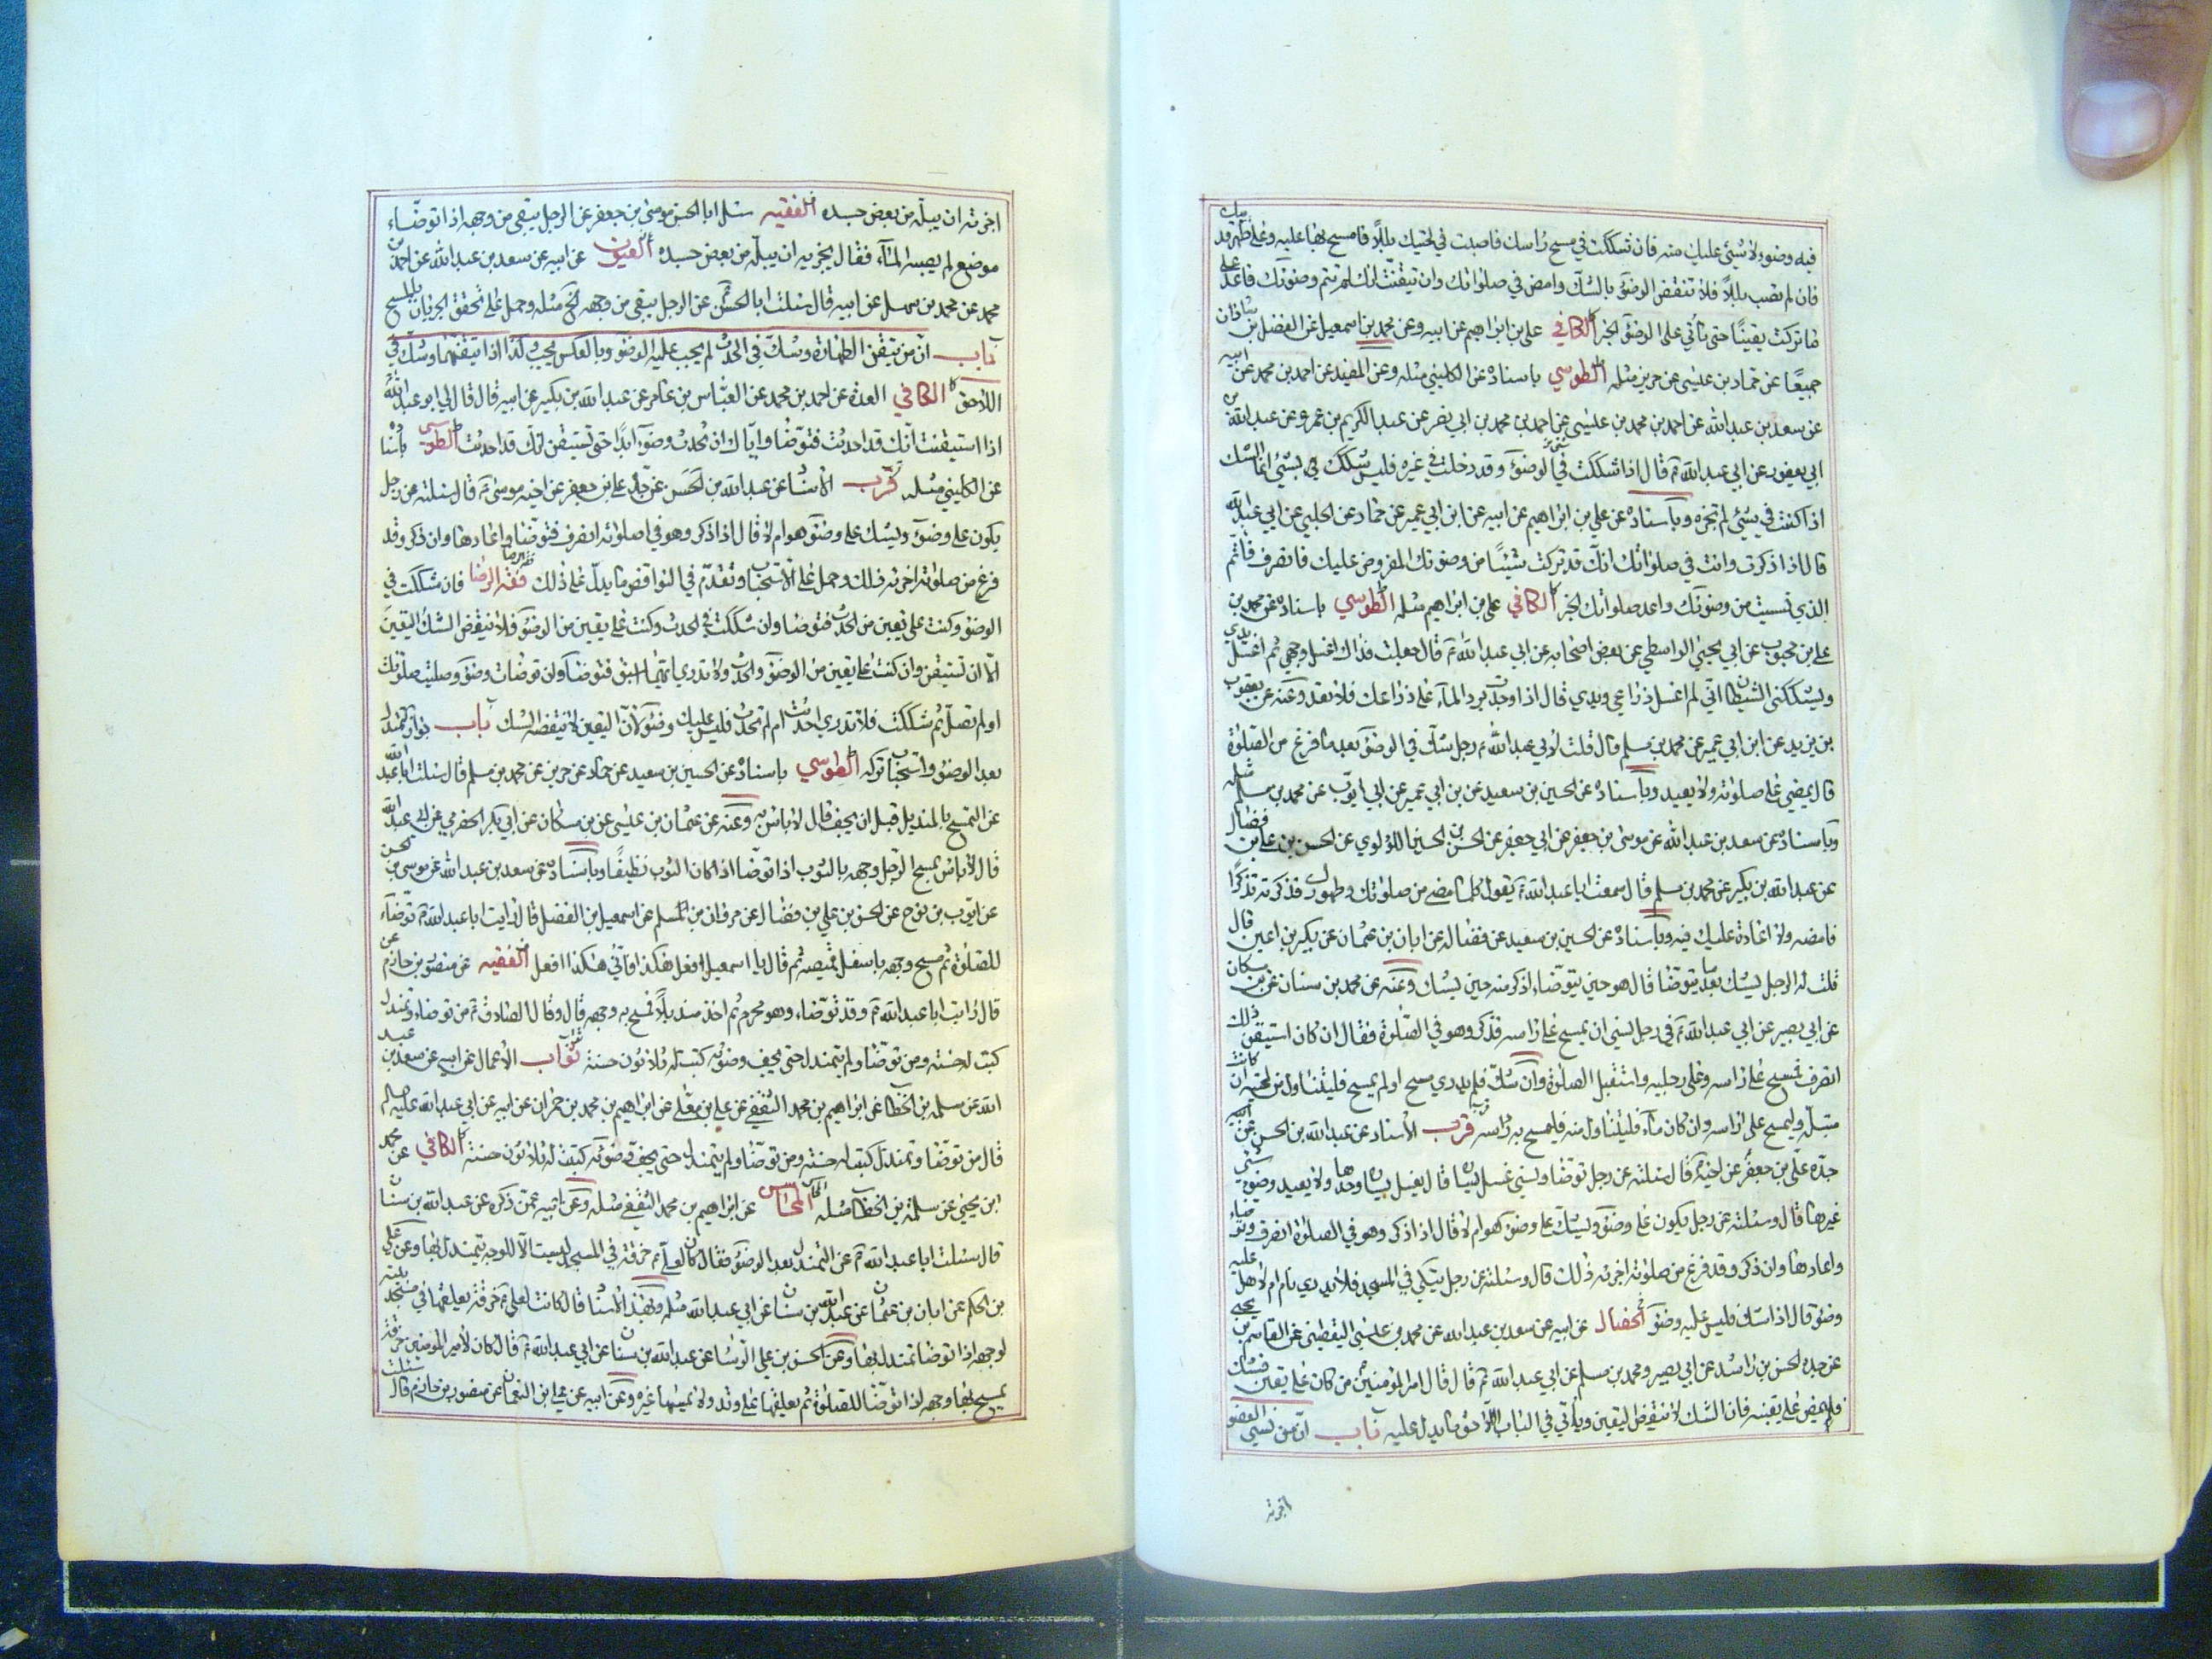 فيه وضوء لا شيئ عليك منه فان شككت في مسح راسك فاصبت في لحيتك بللًا فامسح بها عليه وعلى ظهر قدميك
فان لم تصب بللًا فلا تنقض الوضوء بالشك وامض في صلوتك وان تيقنت انك لم تتم وضوئك فاعد على
ما تركت يقينًا حتى تأتي على الوضوء الخبر الكافي علي بن ابراهيم عن ابيه وعن محمد بن اسمعيل عن الفضل بن شاذان
جميعًا عن حماد بن عيسى عن حريز مثله الطوسي باسناده عن الكليني مثله وعن المفيد عن احمد بن محمد عن ابيه
عن سعد بن عبد الله عن احمد بن محمد بن عيسى عن احمد بن محمد بن ابي نصر عن عبد الكريم بن عمرو عن عبد الله بن
ابي يعفور عن ابي عبد الله ع قال اذا شككت في شيئ من الوضوء وقد دخلت في غيره فليس شكك بشيئ انما الشك
اذا كنت في شيئ لم تجزه وباسناده عن علي بن ابراهيم عن ابيه عن ابن ابي عمير عن حماد عن الحلبي عن ابي عبد الله
قال اذا ذكرت وانت في صلوتك انك قد تركت شيئًا من وضوئك المفروض عليك فانصرف فاتم
الذي نسيت من وضوئك واعد صلوتك الخبر الكافي علي بن ابراهيم مثله الطوسي باسناده عن محمد بن
علي بن محبوب عن ابي يحيى الواسطي عن بعض اصحابه عن ابي عبد الله ع قال قلت جعلت فداك اغسل وجهي ثم اغسل يدي
ويشككني الشيطان اني لم اغسل ذراعي ويدي قال اذا وجدت برد الماء على ذراعك فلا تعد وعنه عن يعقوب
بن يزيد عن ابن ابي عمير عن محمد بن مسلم قال قلت لابي عبد الله ع رجل شك في الوضوء بعد ما فرغ من الصلوة
قال يمضي على صلوته ولا يعيد وباسناده عن الحسين بن سعيد عن بن ابي عمير عن ابي ايوب عن محمد بن مسلم مثله
وباسناده عن سعد بن عبد الله عن موسى بن جعفر عن ابي جعفر عن الحسن بن الحسين اللؤلوي عن الحسن بن علي بن فضال
عن عبد الله بن بكير عن محمد بن مسلم قال سمعت ابا عبد الله ع يقول كلما مضى من صلوتك وطهورك فذكرته تذكرًا
فامضه ولا اعادة عليك فيه وباسناده عن الحسين بن سعيد عن فضاله عن ابان بن عثمان عن بكير بن اعين قال
قلت له الرجل يشك بعد ما يتوضا قال هو حين يتوضاء اذكر منه حين يشك وعنه عن محمد بن سنان عن بن مسكان
عن ابي بصير عن ابي عبد الله ع في رجل نسي ان يمسح على راسه فذكر وهو في الصلوة فقال ان كان استيقن ذلك
انصرف فمسح على راسه وعلى رجليه واستقبل الصلوة وان شك فلم يدري مسح او لم يمسح فليتناول من لحيته ان كانت
مبتلّه وليمسح على راسه وان كان ماء فليتناول منه فليمسح به راسه قرب الاسناد عن عبد الله بن الحسن عن
جده علي بن جعفر عن اخيه ع قال سئلته عن رجل توضا ونسي غسل يساره قال يغسل يساره وحدها ولا يعيد وضوء شيئ
غيرها قال وسئلته عن رجل يكون على وضوء ويشك على وضوء هو ام لا قال اذا ذكر وهو في الصلوة انصرف وتوضاء
واعادها وان ذكر وقد فرغ من صلوته اجزئه ذلك قال وسئلته عن رجل يتكي في المسجد فلا يدري نام ام لا هل عليه
وضوء قال اذا شك فليس عليه وضوء الخصال عن ابيه عن سعد بن عبد الله عن محمد بن عيسى اليقطيني عن القاسم بن يحيى
عن جده الحسن بن راشد عن ابي بصير ومحمد بن مسلم عن ابي عبد الله ع قال قال امير المؤمنين ع من كان على يقين فشك
فليمض على يقينه فان الشك لا ينقض اليقين ويأتي في الباب اللاحق ما يدل عليه باب ان من نسي العضو
اجزئه
اجزئه ان يبلّه من بعض جسده الفقيه سئل ابا الحسن موسى بن جعفر عن الرجل يبقى من وجهه اذا توضّاء
موضع لم يصبه المآء فقال يجزيه ان يبلّه من بعض جسده العيون عن ابيه عن سعد بن عبد الله عن احمد بن
محمد عن محمد بن سهل عن ابيه قال سئلت ابا الحسن عن الرجل يبقى من وجهه الخ مثله وحمل على تحقق الجريان بالمسح
باب ان من تيقن الطهارة وشك في الحدث لم يجب عليه الوضوء وبالعكس يجب وكذا اذا تيقنهما وشك في
اللاحق الكافي العدة عن احمد بن محمد عن العباس بن عامر عن عبد الله بن بكير عن ابيه قال قال لي ابو عبد الله
اذا استيقنت انّك قد احدثت فتوضا وايّاك ان تحدث وضوءا ابدًا حتى تستيقن انك قد احدثت الطوسي باسناده
عن الكليني مثله قرب الاسناد عن عبد الله بن الحسن عن جده علي بن جعفر عن اخيه موسى ع قال سئلته عن رجل
يكون على وضوء ويشك على وضوء هو ام لا قال اذا ذكر وهو في صلوته انصرف فتوضا واعادها وان ذكر وقد
فرغ من صلوته اجزئه ذلك وحمل على الاستحباب وتقدّم في النواقض ما يدلّ على ذلك فقه الرضا فان شككت في
الوضوء وكنت على يقين من الحدث فتوضا وان شككت في الحدث وكنت على يقين من الوضوء فلا ينقض الشك اليقين
الّا ان تستيقن وان كنت على يقين من الوضوء والحدث ولا تدري ايّهما اسبق فتوضا وان توضات وضوء وصليت صلوتك
او لم تصلّ ثم شككت فلا تدري احدثت ام لم تحدث فليس عليك وضوء لانّ اليقين لا ينقضه الشك باب جواز التمندل
بعد الوضوء واستحباب تركه الطوسي باسناده عن الحسين بن سعيد عن حماد عن حريز عن محمد بن مسلم قال سئلت ابا عبد الله
عن التمسح بالمنديل قبل ان يجف قال لا باس به وعنه عن عثمان بن عيسى عن بن مسكان عن ابي بكر الحضرمي عن ابي عبد الله
قال لا باس بمسح الرجل وجهه بالثوب اذا توضّا اذا كان الثوب نظيفًا وباسناده عن سعد بن عبد الله عن موسى بن الحسن
عن ايوب بن نوح عن الحسن بن علي بن فضال عن مروان بن مسلم عن اسمعيل بن الفضل قال رايت ابا عبد الله ع توضاء
للصلوة ثم مسح وجهه باسفل قميصه ثم قال يا اسمعيل افعل هكذا فاني هكذا افعل الفقيه عن منصور بن حازم
قال رايت ابا عبد الله ع وقد توضاء وهو محرم ثم اخذ منديلًا فمسح به وجهه قال وقال الصادق ع من توضاء وتمندل
كتبت له حسنة ومن توضا ولم يتمندل حتى يجف وضوئه كتبت له ثلاثون حسنة ثواب الاعمال عن ابيه عن سعد بن عبد
الله عن سلمه بن الخطاب عن ابراهيم بن محمد الثقفي عن علي بن معلى عن ابراهيم بن محمد بن حمران عن ابيه عن ابي عبد الله عليه السلم
قال من توضا وتمندل كتبت له حسنة ومن توضا ولم يتمندل حتى يجفّ وضوئه كتبت له ثلاثون حسنة الكافي عن محمد
بن يحيى عن سلمة بن الخطاب مثله المحاسن عن ابراهيم بن محمد الثقفي مثله وعن ابيه عمن ذكره عن عبد الله بن سنان
قال سئلت ابا عبد الله ع عن التمندل بعد الوضوء فقال كان لعلي ع خرقة في المسجد ليست الّا للوجه يتمندل بها وعن علي
بن الحكم عن ابان بن عثمان عن عبد الله بن سنان عن ابي عبد الله مثله وبهذا الاسناد قال كانت لعلي ع خرقة يعلقها في مسجد بيته
لوجهه اذا توضا تمندل بها وعن الحسن بن علي الوشا عن عبد الله بن سنان عن ابي عبد الله ع قال كان لامير المؤمنين خرقة
يمسح بها وجهه اذا توضّا للصلوة ثم يعلقها على وتد ولا يمسها غيره وعن ابيه عن علي بن النعمان عن منصور بن حازم قال سئلت